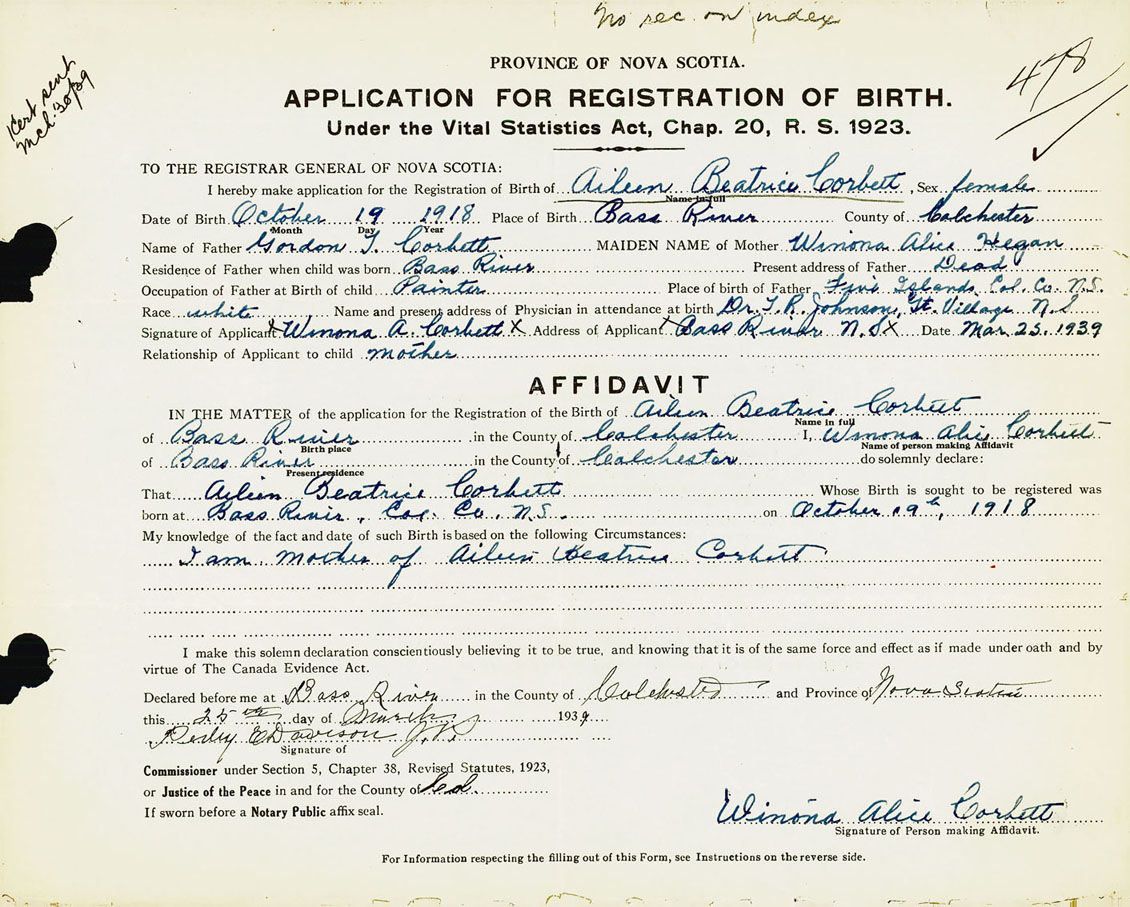 No rec. on index
478
Cert sent
Mch. 30/39
PROVINCE OF NOVA SCOTIA.
APPLICATION FOR REGISTRATION OF BIRTH.
Under the Vital Statistics Act, Chap. 20, R. S. 1923.
TO THE REGISTRAR GENERAL OF NOVA SCOTIA:
I hereby make application for the Registration of Birth of Aileen Beatrice Corbett, Sex female
Name in full
Date of Birth October 19 1918 Place of Birth Bass River County of Colchester
Month Day Year
Name of Father Gordon T. Corbett MAIDEN NAME of Mother Winona Alice Hegan
Residence of Father when child was born Bass River Present address of Father Dead
Occupation of Father at Birth of child Painter Place of birth of Father Five Islands Col. Co. N.S.
Race white Name and present address of Physician in attendance at birth Dr. T. R. Johnson, Gt. Village N.S
Signature of Applicant X Winona A. Corbett X Address of Applicant X Bass River N.S X Date Mar. 25. 1939
Relationship of Applicant to child mother
AFFIDAVIT
IN THE MATTER of the application for the Registration of the Birth of Aileen Beatrice Corbett
Name in full
of Bass River in the County of Colchester I, Winona Alice Corbett
Birth place Name of person making Affidavit
of Bass River in the County of Colchester do solemnly declare:
Present residence
That Aileen Beatrice Corbett Whose Birth is sought to be registered was
born at Bass River, Col. Co. N.S. on October 19th, 1918
My knowledge of the fact and date of such Birth is based on the following Circumstances:
I am Mother of Aileen Beatrice Corbett
I make this solemn declaration conscientiously believing it to be true, and knowing that it is of the same force and effect as if made under oath and by
virtue of The Canada Evidence Act.
Declared before me at Bass River in the County of Colchester and Province of Nova Scotia
this 25th day of March 1939
E Davison J.P.
Signature of
Commissioner under Section 5, Chapter 38, Revised Statutes, 1923,
or Justice of the Peace in and for the County of Col.
If sworn before a Notary Public affix seal.
Winona Alice Corbett
Signature of Person making Affidavit.
For Information respecting the filling out of this Form, see Instructions on the reverse side.